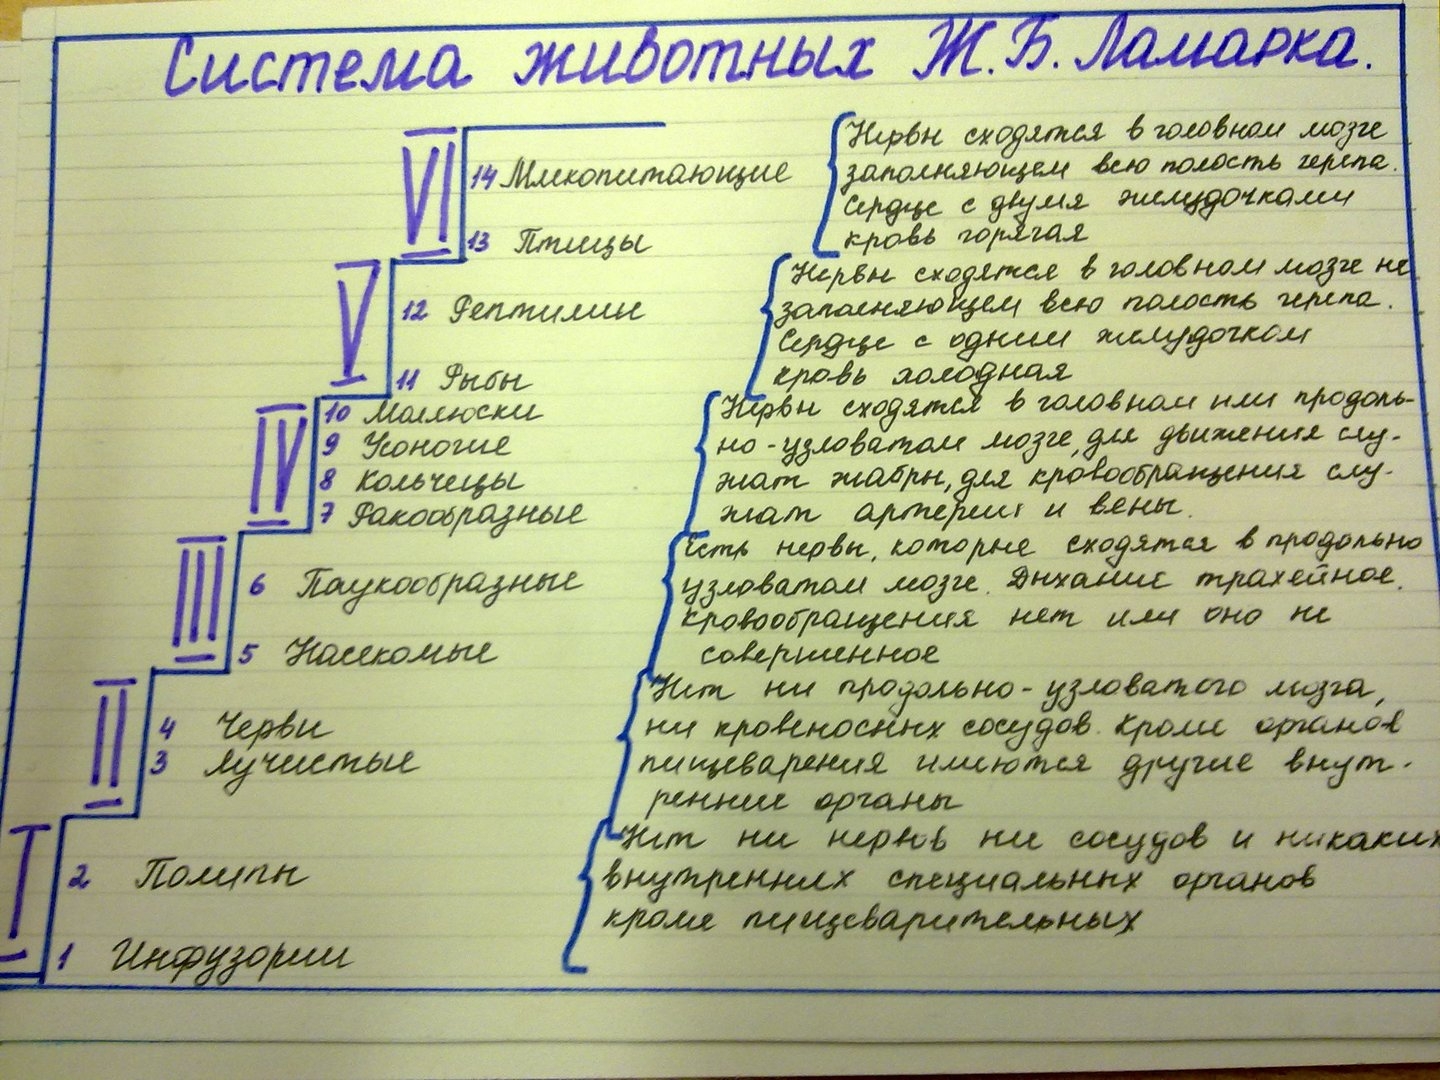 Система животных Ж.Б. Ламарка.
VI
14 Млекопитающие
13 Птицы
Нервы сходятся в головном мозге
заполняющем всю полость черепа.
Сердце с двумя желудочками
кровь горячая
V
12 Рептилии
11 Рыбы
Нервы сходятся в головном мозге не
заполняющем всю полость черепа.
Сердце с одним желудочком
кровь холодная
IV
10 Моллюски
9 Усоногие
8 Кольчецы
7 Ракообразные
Нервы сходятся в головном или продоль-
но-узловатом мозге, для движения слу-
жат жабры, для кровообращения слу-
жат артерии и вены.
III
6 Паукообразные
5 Насекомые
Есть нервы, которые сходятся в продольно
узловатом мозге. Дыхание трахейное.
Кровообращения нет или оно не
совершенное
II
4 Черви
3 Лучистые
Нет ни продольно-узловатого мозга,
ни кровеносных сосудов. Кроме органов
пищеварения имеются другие внут-
ренние органы
I
2 Полипы
1 Инфузории
Нет ни нервов ни сосудов и никаких
внутренних специальных органов
кроме пищеварительных